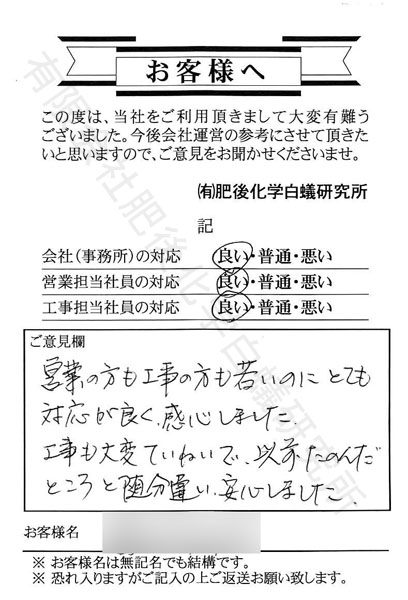 お客様へ
この度は、当社をご利用頂きまして大変有難う
ございました。今後会社運営の参考にさせて頂きた
いと思いますので、ご意見をお聞かせくださいませ。
㈲肥後化学白蟻研究所
記
会社(事務所)の対応 良い・普通・悪い
営業担当社員の対応 良い・普通・悪い
工事担当社員の対応 良い・普通・悪い
ご意見欄
営業の方も工事の方も若いのにとても
対応が良く、感心しました。
工事も大変ていねいで、以前たのんだ
ところと随分違い、安心しました。
お客様名
※ お客様名は無記名でも結構です。
※ 恐れ入りますがご記入の上ご返送お願い致します。
有限会社肥後化学白蟻研究所